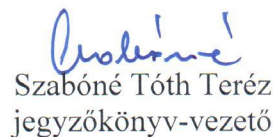 Szabóné Tóth Teréz
jegyzőkönyv-vezető